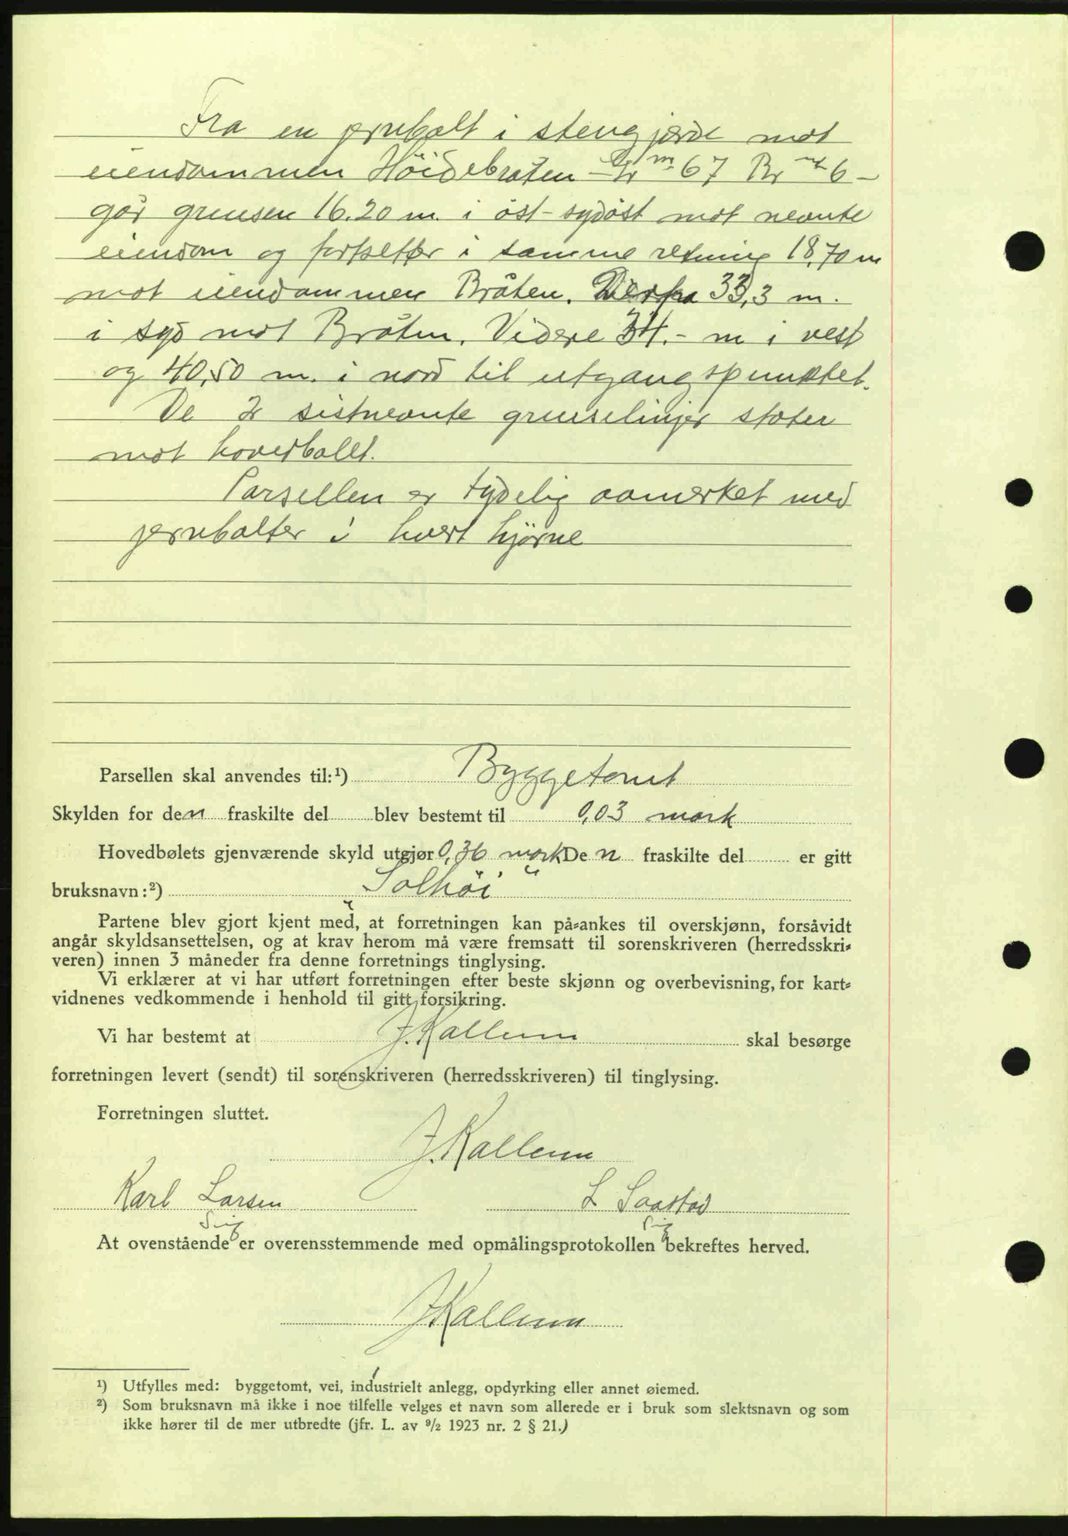 Fra en jernbolt i stengjerde mot
eiendommen Höidebraten - Gr nr 67 Br nr 6 -
går grensen 16.20 m. i öst-sydöst mot nevnte
eiendom og fortsetter i samme retning 18,70 m
mot eiendommen Bråten. Derfra 33,3 m.
i syd mot Bråten. Videre 34.- m i vest
og 40,50 m. i nord til utgangspunktet.
De 2 sistnevnte grenselinjer støter
mot hovedbølet.
Parsellen er tydelig avmerket med
jernbolter i hvert hjörne
Parsellen skal anvendes til:¹) Byggetomt
Skylden for den fraskilte del blev bestemt til 0,03 mark
Hovedbølets gjenværende skyld utgjør 0,36 mark De n fraskilte del er gitt
bruksnavn:²) "Solhöi"
Partene blev gjort kjent med, at forretningen kan på-ankes til overskjønn, forsåvidt
angår skyldsansettelsen, og at krav herom må være fremsatt til sorenskriveren (herredsskri-
veren) innen 3 måneder fra denne forretnings tinglysing.
Vi erklærer at vi har utført forretningen efter beste skjønn og overbevisning, for kart-
vidnenes vedkommende i henhold til gitt forsikring.
Vi har bestemt at J. Kallerun skal besørge
forretningen levert (sendt) til sorenskriveren (herredsskriveren) til tinglysing.
Forretningen sluttet.
J. Kallerun
Karl Larsen L Saastad
Sig Sig
At ovenstående er overensstemmende med opmålingsprotokollen bekreftes herved.
J. Kallerun
¹) Utfylles med: byggetomt, vei, industrielt anlegg, opdyrking eller annet øiemed.
²) Som bruksnavn må ikke i noe tilfelle velges et navn som allerede er i bruk som slektsnavn og som
ikke hører til de mer utbredte (jfr. L. av 9/2 1923 nr. 2 § 21.)